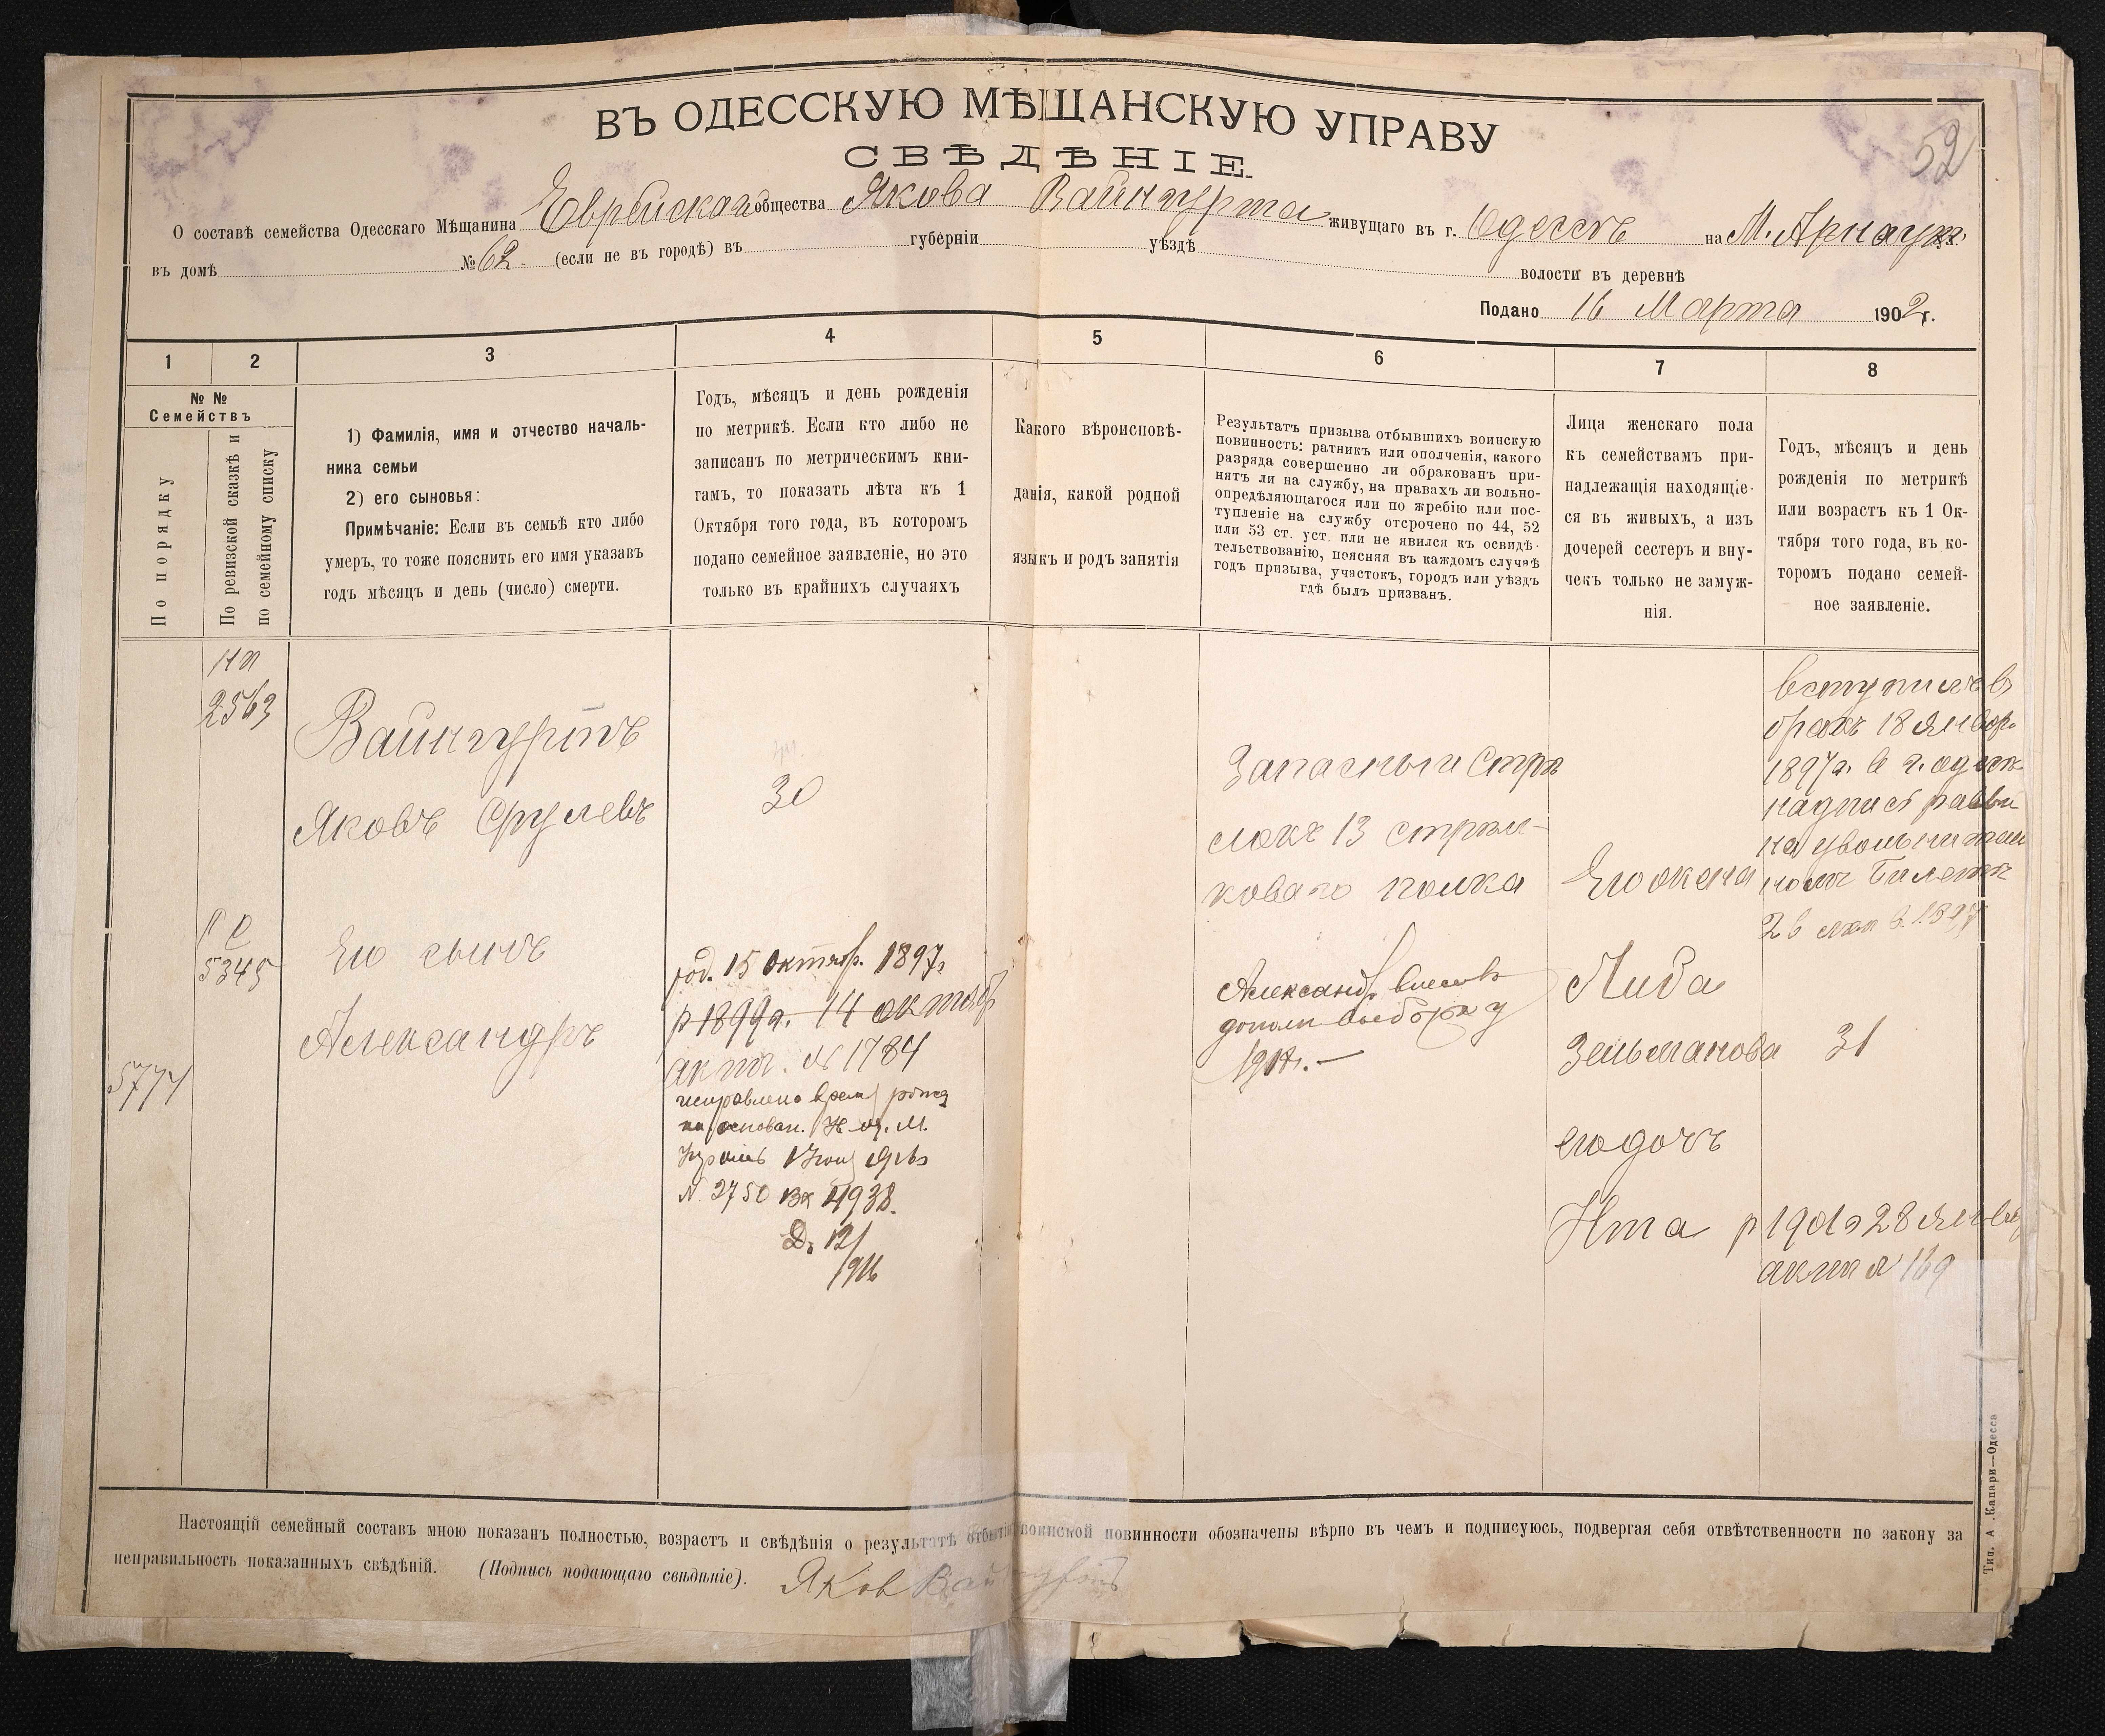 52
ВЪ ОДЕССКУЮ МѢЩАНСКУЮ УПРАВУ
СВѢДѢНІЕ.
О составѣ семейства Одесскаго Мѣщанина Еврейскаго общества Якова Вайнгурта живущаго въ г. Одессѣ на М. Арнаут.
въ домѣ № 62 (если не въ городѣ) въ губерніи уѣздѣ волости въ деревнѣ
Подано 16 Марта 1902 г.
1 2 3 4 5 6 7 8
№ №
Семействъ
По порядку
По ревизской сказкѣ и
по семейному списку
1) Фамилія, имя и отчество началь-
ника семьи
2) его сыновья:
Примѣчаніе: Если въ семьѣ кто либо
умеръ, то тоже пояснить его имя указавъ
годъ мѣсяцъ и день (число) смерти.
Годъ, мѣсяцъ и день рожденія
по метрикѣ. Если кто либо не
записанъ по метрическимъ кни-
гамъ, то показать лѣта къ 1
Октября того года, въ котором
подано семейное заявленіе, но это
только въ крайнихъ случаяхъ
Какого вѣроисповѣ-
данія, какой родной
языкъ и родъ занятія
Результатъ призыва отбывшихъ воинскую
повинность: ратникъ или ополченія, какого
разряда совершенно ли обракованъ при-
нятъ ли на службу, на правахъ ли вольно-
опредѣляющагося или по жребію или пос-
тупленіе на службу отсрочено по 44, 52
или 53 ст. уст. или не явился къ освидѣ-
тельствованію, поясняя въ каждомъ случаѣ
годъ призыва, участокъ, городъ или уѣздъ
гдѣ былъ призванъ.
Лица женскаго пола
къ семействамъ при-
надлежащія находящіе-
ся въ живыхъ, а изъ
дочерей сестеръ и вну-
чекъ только не замуж-
нія.
Годъ, мѣсяцъ и день
рожденія по метрикѣ
или возрастъ къ 1 Ок-
тября того года, въ ко-
торомъ подано семей-
ное заявленіе.
2563
Вайнгуртъ
Яковъ Срулевъ
30
Запасный Стрѣ
локъ 13 стрѣл-
коваго полка
Его жена
Либа
Зельманова 31
вступилъ в
бракъ 18 Январ.
1897 г. в г. Одесѣ
надпись раввин
на увольнительн
номъ Билетѣ
5345
Его сынъ
Александръ
5777
род. 15 октябр. 1897 г.
р 1899 г. 14 октябр
акт. № 1784
исправлено время рожд
на основан.
N. 2750 вх 4938.
12/
1916
Александр внесенъ
дополн
его дочь
Ита р 1901 г 28 Январ
акт № 169
Настоящій семейный составъ мною показанъ полностью, возрастъ и свѣдѣнія о результатѣ отбытія воинской повинности обозначены вѣрно въ чемъ и подписуюсь, подвергая себя отвѣтственности по закону за
неправильность показанныхъ свѣдѣній. (Подпись подающаго свѣдѣніе). Яков Вайнгуртъ
Тип. А. Капари—Одесса